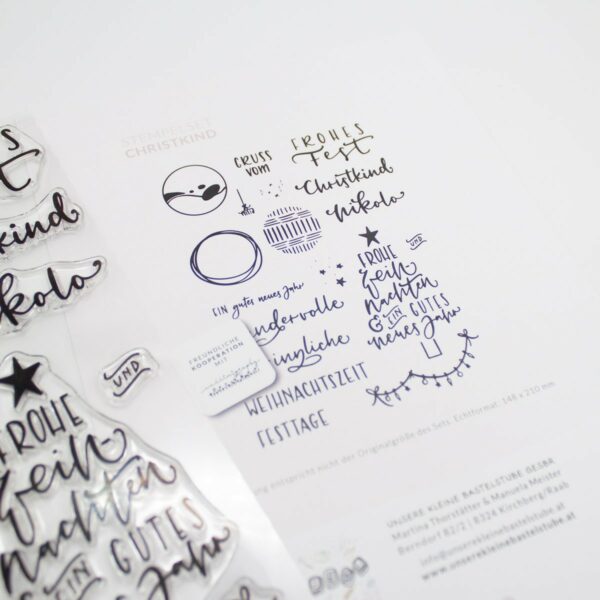 STEMPELSET
CHRISTKIND
GRUSS
VOM
FROHES
Fest
Christkind
Nikolo
UND
FROHE
Weih-
nachten
& EIN GUTES
neues Jahr
EIN gutes neues Jahr
ndervolle
nnliche
WEIHNACHTSZEIT
FESTTAGE
FREUNDLICHE
KOOPERATION
MIT
ung entspricht nicht der Originalgröße des Sets. Echtformat: 148 x 210 mm
UNSERE KLEINE BASTELSTUBE GESBR
Martina Thorstätter & Manuela Meister
Berndorf 82/2 | 8324 Kirchberg/Raab
info@unserekleinebastelstube.at
www.unserekleinebastelstube.at
S
t
kind
ikolo
UND
FROHE
Weih-
nachten
EIN GUTES
Jahr